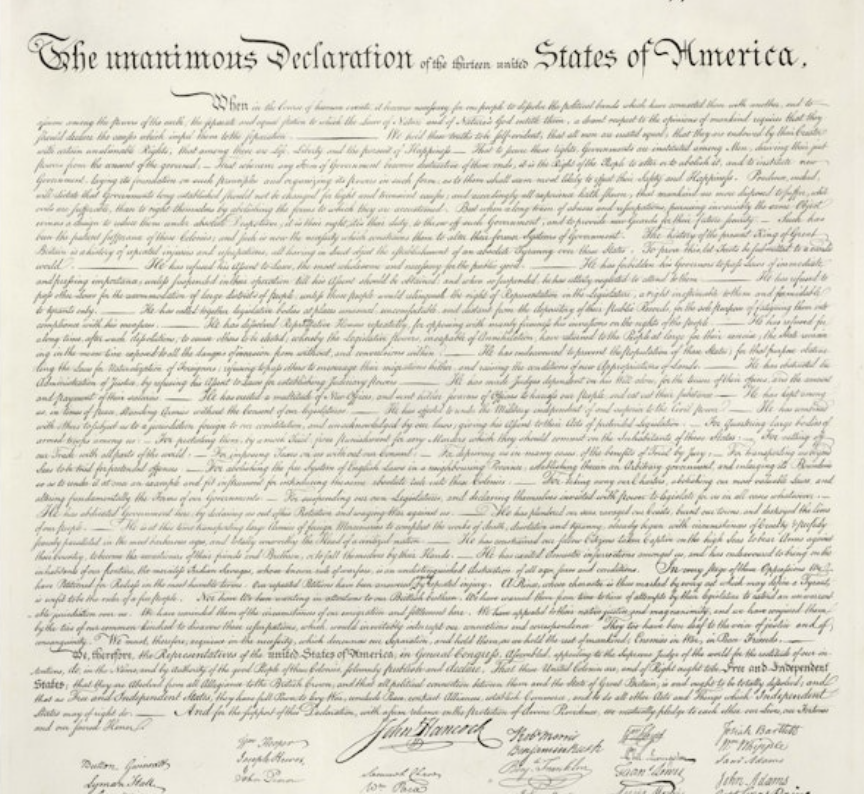 The unanimous Declaration of the thirteen united States of America,
When in the Course of human events, it becomes necessary for one people to dissolve the political bands which have connected them with another, and to
assume among the powers of the earth, the separate and equal station to which the Laws of Nature and of Nature's God entitle them, a decent respect to the opinions of mankind requires that they
should declare the causes which impel them to the separation. We hold these truths to be self-evident, that all men are created equal, that they are endowed by their Creator
with certain unalienable Rights, that among these are Life, Liberty and the pursuit of Happiness.— That to secure these rights, Governments are instituted among Men, deriving their just
powers from the consent of the governed,— That whenever any Form of Government becomes destructive of these ends, it is the Right of the People to alter or to abolish it, and to institute new
Government, laying its foundation on such principles and organizing its powers in such form, as to them shall seem most likely to effect their Safety and Happiness. Prudence, indeed,
will dictate that Governments long established should not be changed for light and transient causes; and accordingly all experience hath shewn, that mankind are more disposed to suffer, while
evils are sufferable, than to right themselves by abolishing the forms to which they are accustomed. But when a long train of abuses and usurpations, pursuing invariably the same Object
evinces a design to reduce them under absolute Despotism, it is their right, it is their duty, to throw off such Government, and to provide new Guards for their future security.— Such has
been the patient sufferance of these Colonies; and such is now the necessity which constrains them to alter their former Systems of Government. The history of the present King of Great
Britain is a history of repeated injuries and usurpations, all having in direct object the establishment of an absolute Tyranny over these States. To prove this, let Facts be submitted to a candid
world. He has refused his Assent to Laws, the most wholesome and necessary for the public good. He has forbidden his Governors to pass Laws of immediate
and pressing importance, unless suspended in their operation till his Assent should be obtained; and when so suspended, he has utterly neglected to attend to them. He has refused to
pass other Laws for the accommodation of large districts of people, unless those people would relinquish the right of Representation in the Legislature, a right inestimable to them and formidable
to tyrants only. He has called together legislative bodies at places unusual, uncomfortable, and distant from the depository of their Public Records, for the sole purpose of fatiguing them into
compliance with his measures. He has dissolved Representative Houses repeatedly, for opposing with manly firmness his invasions on the rights of the people. He has refused for
a long time, after such dissolutions, to cause others to be elected; whereby the Legislative powers, incapable of Annihilation, have returned to the People at large for their exercise; the State remain-
ing in the mean time exposed to all the dangers of invasion from without, and convulsions within. He has endeavoured to prevent the population of these States; for that purpose obstruc-
ting the Laws for Naturalization of Foreigners; refusing to pass others to encourage their migrations hither, and raising the conditions of new Appropriations of Lands. He has obstructed the
Administration of Justice, by refusing his Assent to Laws for establishing Judiciary powers. He has made Judges dependent on his Will alone, for the tenure of their offices, and the amount
and payment of their salaries. He has erected a multitude of New Offices, and sent hither swarms of Officers to harrass our people, and eat out their substance. He has kept among
us, in times of peace, Standing Armies without the Consent of our legislatures. He has affected to render the Military independent of and superior to the Civil power. He has combined
with others to subject us to a jurisdiction foreign to our constitution, and unacknowledged by our laws; giving his Assent to their Acts of pretended Legislation:— For Quartering large bodies of
armed troops among us:— For protecting them, by a mock Trial, from punishment for any Murders which they should commit on the Inhabitants of these States:— For cutting off
our Trade with all parts of the world:— For imposing Taxes on us without our Consent:— For depriving us in many cases, of the benefits of Trial by Jury:— For transporting us beyond
Seas to be tried for pretended offences— For abolishing the free System of English Laws in a neighbouring Province, establishing therein an Arbitrary government, and enlarging its Boundaries
so as to render it at once an example and fit instrument for introducing the same absolute rule into these Colonies:— For taking away our Charters, abolishing our most valuable Laws, and
altering fundamentally the Forms of our Governments:— For suspending our own Legislatures, and declaring themselves invested with power to legislate for us in all cases whatsoever.—
He has abdicated Government here, by declaring us out of his Protection and waging War against us.— He has plundered our seas, ravaged our Coasts, burnt our towns, and destroyed the lives
of our people.— He is at this time transporting large Armies of foreign Mercenaries to compleat the works of death, desolation and tyranny, already begun with circumstances of Cruelty & perfidy
scarcely paralleled in the most barbarous ages, and totally unworthy the Head of a civilized nation.— He has constrained our fellow Citizens taken Captive on the high Seas to bear Arms against
their Country, to become the executioners of their friends and Brethren, or to fall themselves by their Hands.— He has excited domestic insurrections amongst us, and has endeavoured to bring on the
inhabitants of our frontiers, the merciless Indian Savages, whose known rule of warfare, is an undistinguished destruction of all ages, sexes and conditions. In every stage of these Oppressions We
have Petitioned for Redress in the most humble terms: Our repeated Petitions have been answered only by repeated injury. A Prince, whose character is thus marked by every act which may define a Tyrant,
is unfit to be the ruler of a free people. Nor have We been wanting in attentions to our Brittish brethren. We have warned them from time to time of attempts by their legislature to extend an unwarrant-
able jurisdiction over us. We have reminded them of the circumstances of our emigration and settlement here. We have appealed to their native justice and magnanimity, and we have conjured them
by the ties of our common kindred to disavow these usurpations, which, would inevitably interrupt our connections and correspondence. They too have been deaf to the voice of justice and of
consanguinity. We must, therefore, acquiesce in the necessity, which denounces our Separation, and hold them, as we hold the rest of mankind, Enemies in War, in Peace Friends.
We, therefore, the Representatives of the united States of America, in General Congress, Assembled, appealing to the Supreme Judge of the world for the rectitude of our in-
tentions, do, in the Name, and by Authority of the good People of these Colonies, solemnly publish and declare, That these United Colonies are, and of Right ought to be Free and Independent
States; that they are Absolved from all Allegiance to the British Crown, and that all political connection between them and the State of Great Britain, is and ought to be totally dissolved; and
that as Free and Independent States, they have full Power to levy War, conclude Peace, contract Alliances, establish Commerce, and to do all other Acts and Things which Independent
States may of right do.— And for the support of this Declaration, with a firm reliance on the protection of divine Providence, we mutually pledge to each other our Lives, our Fortunes
and our sacred Honor.
John Hancock
Button Gwinnett
Lyman Hall
Wm Hooper
Joseph Hewes,
John Penn
Samuel Chase
Wm Paca
Robt Morris
Benjamin Rush
Benja. Franklin
Wm Floyd
Phil. Livingston
Frans. Lewis
Lewis Morris
Josiah Bartlett
Wm Whipple
Saml Adams
John Adams
Robt Treat Paine